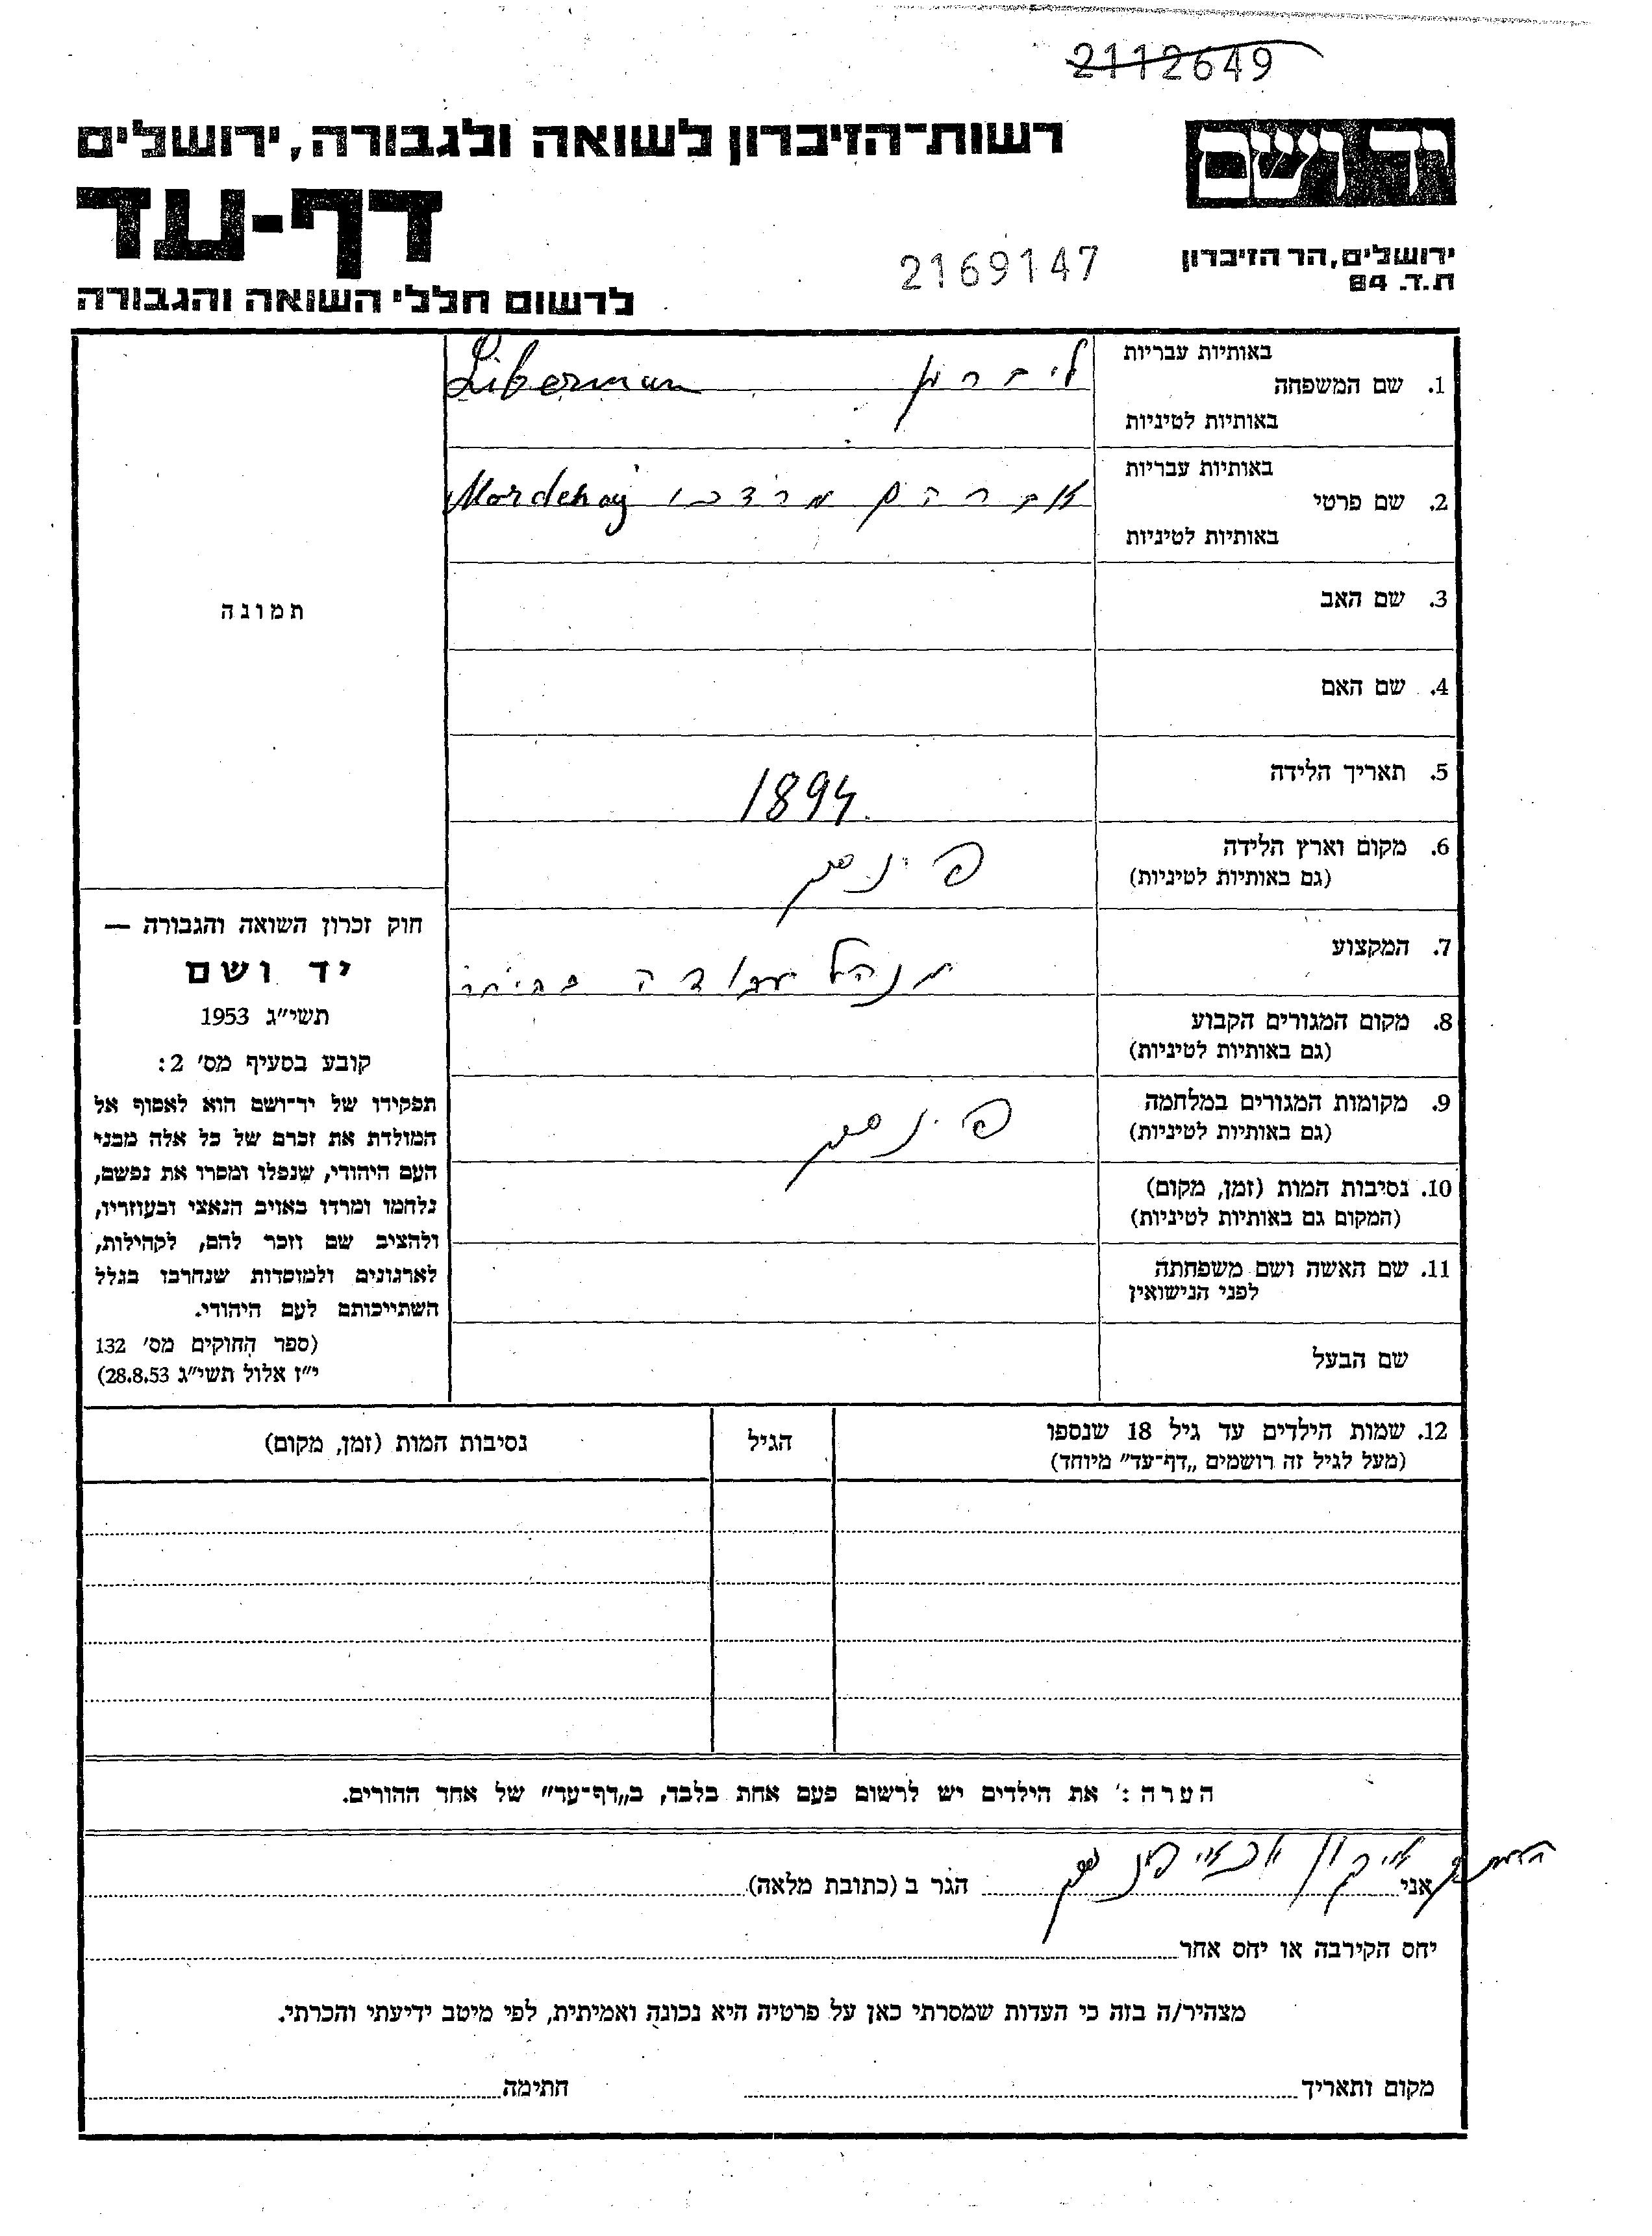 2112649
רשות־הזיכרון לשואה ולגבורה, ירושלים
יד ושם
דף-עד
ירושלים, הר הזיכרון
ת.ד. 84
2169147
לרשום חללי השואה והגבורה
באותיות עבריות
1. שם המשפחה
באותיות לטיניות
ליברמן Liberman
באותיות עבריות
2. שם פרטי
באותיות לטיניות
אברהם מרדכי Mordehay
3. שם האב
4. שם האם
5. תאריך הלידה
1894
6. מקום וארץ הלידה
(גם באותיות לטיניות)
פינסק
7. המקצוע
מנהל עבודה
8. מקום המגורים הקבוע
(גם באותיות לטיניות)
9. מקומות המגורים במלחמה
(גם באותיות לטיניות)
פינסק
10. נסיבות המות (זמן, מקום)
(המקום גם באותיות לטיניות)
11. שם האשה ושם משפחתה
לפני הנישואין
שם הבעל
תמונה
חוק זכרון השואה והגבורה —
יד ושם
תשי"ג 1953
קובע בסעיף מס' 2:
תפקידו של יד־ושם הוא לאסוף אל
המולדת את זכרם של כל אלה מבני
העם היהודי, שנפלו ומסרו את נפשם,
נלחמו ומרדו באויב הנאצי ובעוזריו,
ולהציב שם וזכר להם, לקהילות,
לארגונים ולמוסדות שנחרבו בגלל
השתייכותם לעם היהודי.
(ספר החוקים מס' 132
י"ז אלול תשי"ג 28.8.53)
12. שמות הילדים עד גיל 18 שנספו
(מעל לגיל זה רושמים „דף־עד" מיוחד)
הגיל
נסיבות המות (זמן, מקום)
הערה: את הילדים יש לרשום פעם אחת בלבד, ב„דף־עד" של אחד ההורים.
אני ארגון יוצאי פינסק הגר ב (כתובת מלאה)
יחס הקירבה או יחס אחר
מצהיר/ה בזה כי העדות שמסרתי כאן על פרטיה היא נכונה ואמיתית, לפי מיטב ידיעתי והכרתי.
מקום ותאריך חתימה